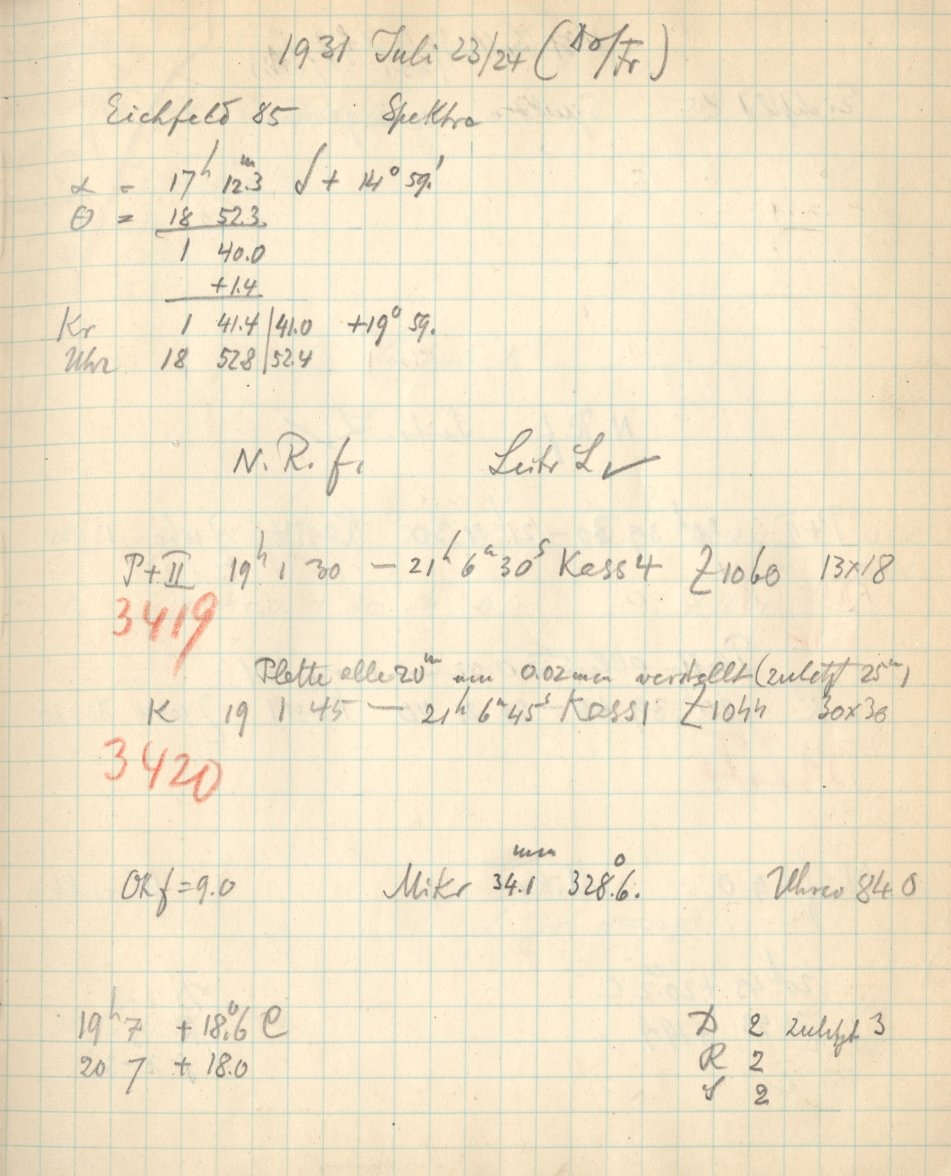 1931 Juli 23/24 (Do/Fr)
Eichfeld 85 Spektra
α = 17h 12.m3 δ + 14° 59.'
θ = 18 52.3
1 40.0
+1.4
Kr 1 41.4 | 41.0 +19° 59.
Uhr 18 52.8 | 52.4
N. R. f. Leitr L ✓
P+II 19h 1 30 — 21h 6m 30s Kass 4 Z1060 13x18
3419
Platte alle 20m um 0.02 mm verstellt (zuletzt 25m)
K 19 1 45 — 21h 6m 45s Kass 1 Z1044 30x30
3420
Ok f = 9.0 Mikr 34.1 mm 328.°6. 84.0
19h 7 + 18.°6 C D 2 zuletzt 3
20 7 + 18.0 R 2
S 2